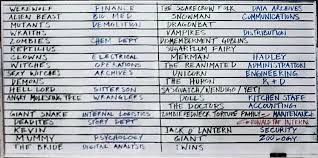 WEREWOLF FINANCE THE SCARECROW FOLK DATA ARCHIVES
ALIEN BEAST BIO MED SNOWMAN COMMUNICATIONS
MUTANTS DEMOLITION DRAGONBAT
WRAITHS VAMPIRES DISTRIBUTION
ZOMBIES CHEM DEPT DISMEMBERMENT GOBLINS
REPTILIUS SUGARPLUM FAIRY
CLOWNS ELECTRICAL MERMAN HADLEY
WITCHES OPERATIONS THE REANIMATED ADMINISTRATION
SEXY WITCHES ARCHIVES UNICORN ENGINEERING
DEMONS THE HURON R + D
HELL LORD SITTERSON SASQUATCH/WENDIGO/YETI
ANGRY MOLESTING TREE WRANGLERS DOLLS KITCHEN STAFF
THE DOCTORS ACCOUNTING
GIANT SNAKE INTERNAL LOGISTICS ZOMBIE REDNECK TORTURE FAMILY MAINTENANCE
DEADITES STORY DEPT RONALD THE INTERN
KEVIN JACK O' LANTERN SECURITY
MUMMY PSYCHOLOGY GIANT ZOOLOGY
THE BRIDE DIGITAL ANALYSIS TWINS